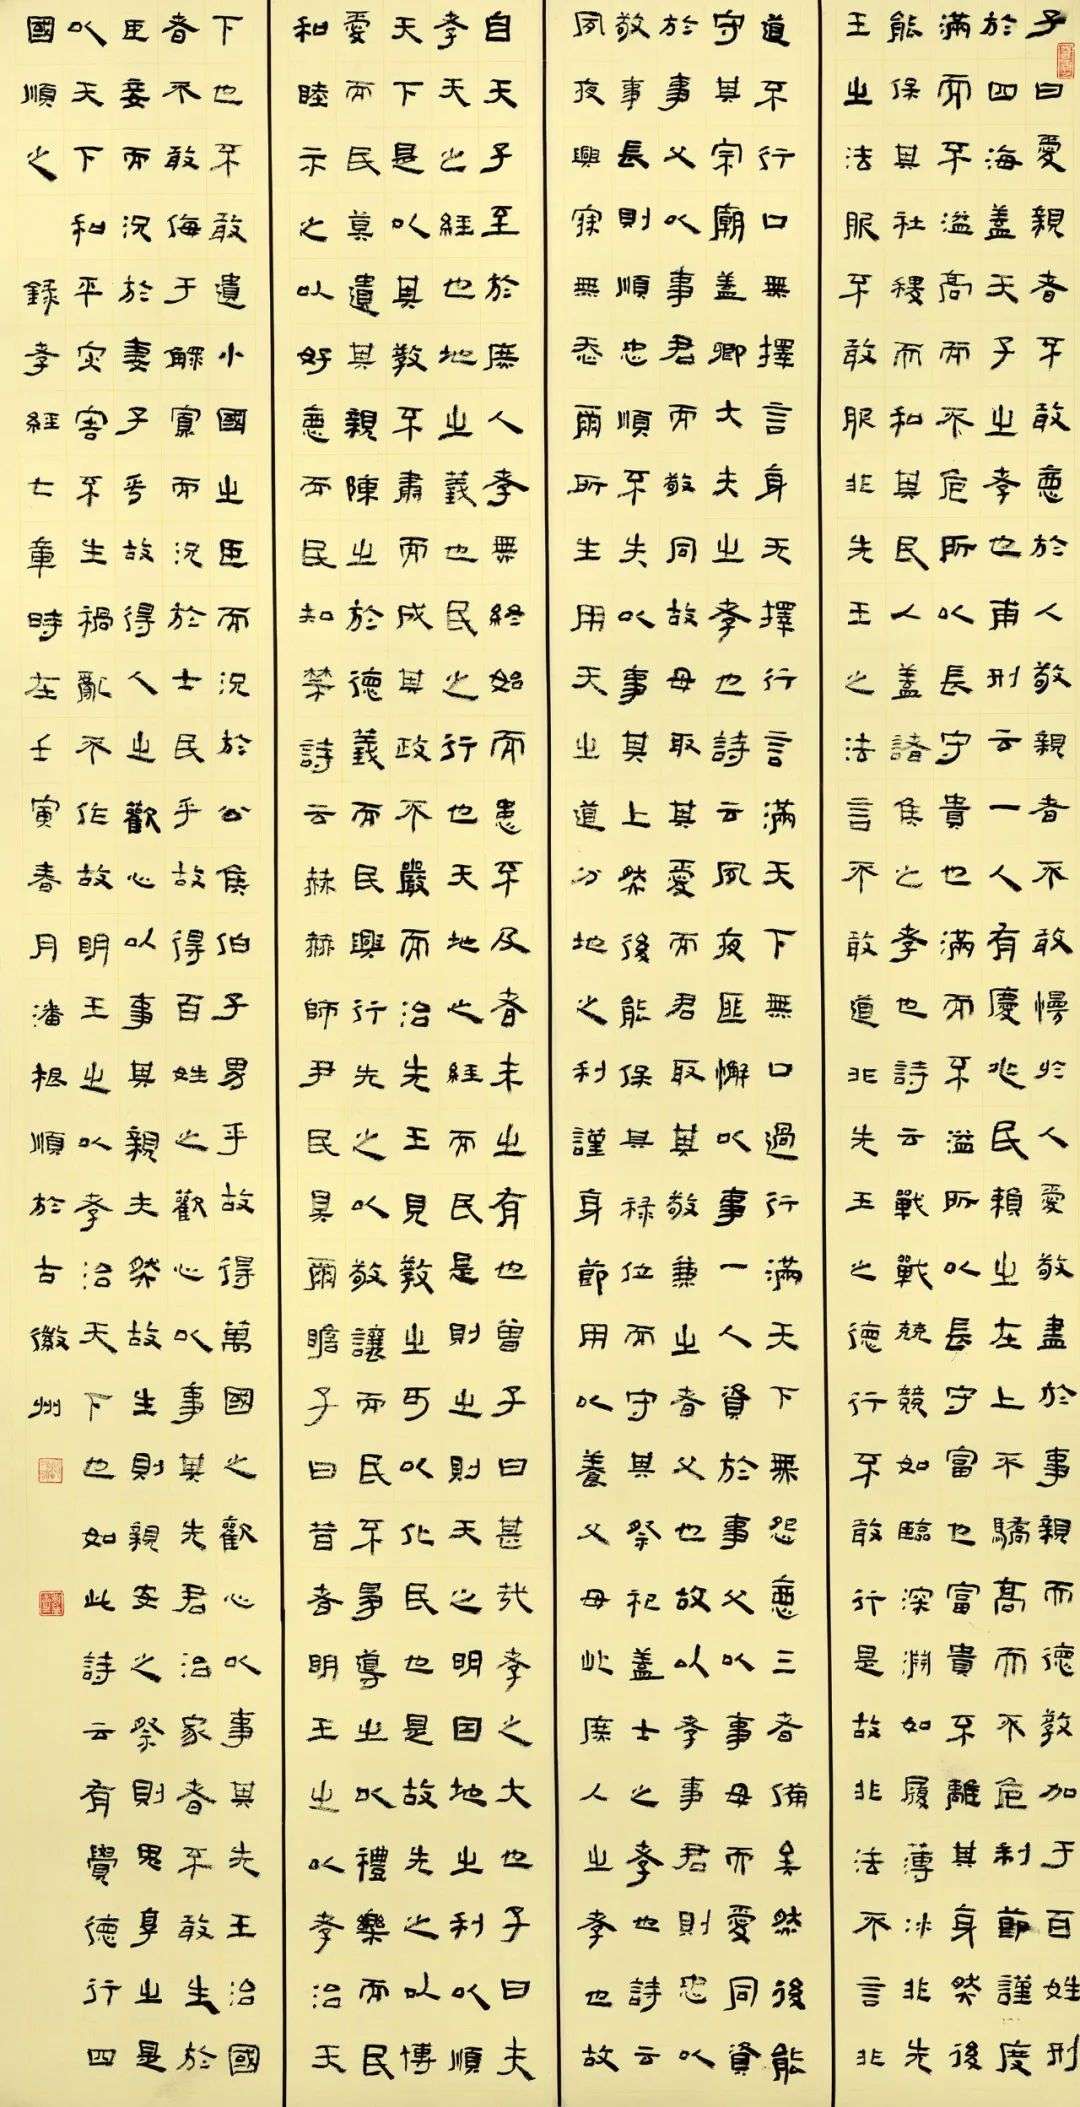 子曰愛親者不敢惡於人敬親者不敢慢於人愛敬盡於事親而德教加于百姓刑
於四海蓋天子之孝也甫刑云一人有慶兆民賴之在上不驕高而不危制節謹度
滿而不溢高而不危所以長守貴也滿而不溢所以長守富也富貴不離其身然後
能保其社稷而和其民人蓋諸侯之孝也詩云戰戰兢兢如臨深淵如履薄冰非先
王之法服不敢服非先王之法言不敢道非先王之德行不敢行是故非法不言非
道不行口無擇言身无擇行言滿天下無口過行滿天下無怨惡三者備矣然後能
守其宗廟蓋卿大夫之孝也詩云夙夜匪懈以事一人資於事父以事母而愛同資
於事父以事君而敬同故母取其愛而君取其敬兼之者父也故以孝事君則忠以
敬事長則順忠順不失以事其上然後能保其祿位而守其祭祀蓋士之孝也詩云
夙夜興寐無忝爾所生用天之道分地之利謹身節用以養父母此庶人之孝也故
自天子至於庶人孝無終始而患不及者未之有也曾子曰甚哉孝之大也子曰夫
孝天之經也地之義也民之行也天地之經而民是則之則天之明因地之利以順
天下是以其教不肅而成其政不嚴而治先王見教之可以化民也是故先之以博
愛而民莫遺其親陳之於德義而民興行先之以敬讓而民不爭導之以禮樂而民
和睦示之以好惡而民知禁詩云赫赫師尹民具爾瞻子曰昔者明王之以孝治天
下也不敢遺小國之臣而況於公侯伯子男乎故得萬國之歡心以事其先王治國
者不敢侮于鰥寡而況於士民乎故得百姓之歡心以事其先君治家者不敢生於
臣妾而況於妻子乎故得人之歡心以事其親夫然故生則親安之祭則鬼享之是
以天下和平災害不生禍亂不作故明王之以孝治天下也如此詩云有覺德行四
國順之 錄孝經七章時在壬寅春月潘根順於古徽州